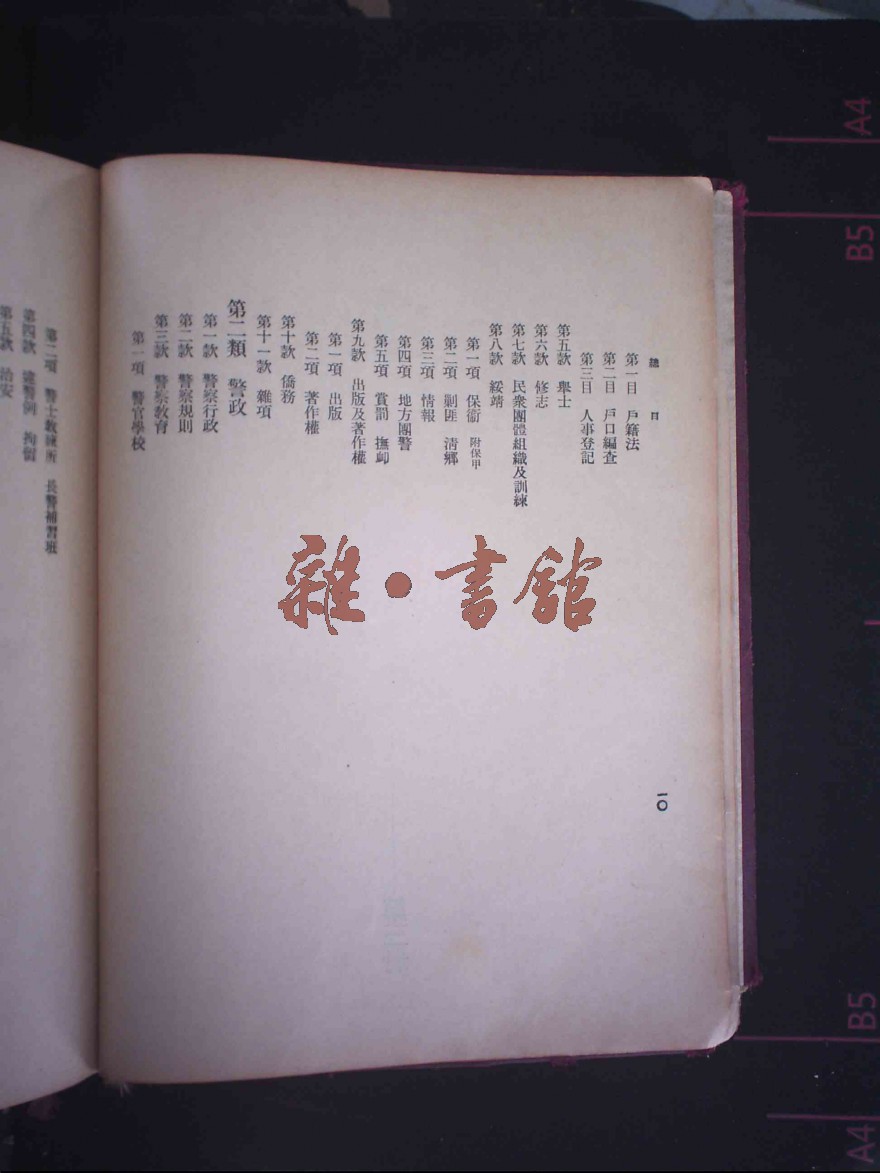 總目
第一目 戶籍法
第二目 戶口編查
第三目 人事登記
第五款 舉士
第六款 修志
第七款 民衆團體組織及訓練
第八款 綏靖
第一項 保衞 附保甲
第二項 剿匪 清鄉
第三項 情報
第四項 地方團警
第五項 賞罰 撫卹
第九款 出版及著作權
第一項 出版
第二項 著作權
第十款 僑務
第十一款 雜項
第二類 警政
第一款 警察行政
第二款 警察規則
第三款 警察教育
第一項 警官學校
一〇
第二項 警士教練所 長警補習班
第四款 違警例 拘留
第五款 治安
雜·書館
A4
B5
B5
A4